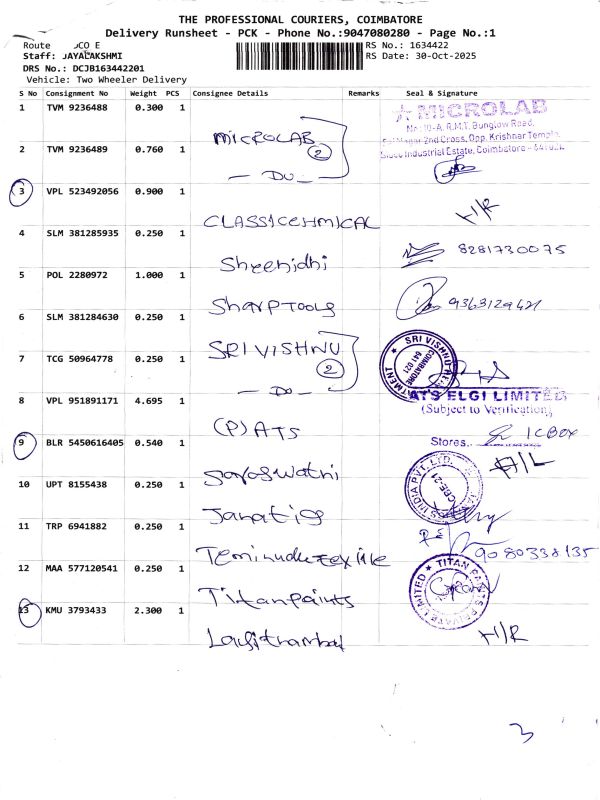 THE PROFESSIONAL COURIERS, COIMBATORE
Delivery Runsheet - PCK - Phone No.:9047080280 - Page No.:1
Route OCO E
RS No.: 1634422
Staff: JAYALAKSHMI
RS Date: 30-Oct-2025
DRS No.: DCJB163442201
Vehicle: Two Wheeler Delivery
S No Consignment No Weight PCS Consignee Details Remarks Seal & Signature
1 TVM 9236488 0.300 1 MICROLAB
MICROLAB
No: 10-A, R.M.T. Bunglow Road,
Sai Nagar 2nd Cross, Opp. Krishnar Temple,
Sidco Industrial Estate, Coimbatore - 641021.
2 TVM 9236489 0.760 1 - DO -
2
3 VPL 523492056 0.900 1 CLASSICEHMICAL H/R
4 SLM 381285935 0.250 1 Shreenidhi 8281730075
5 POL 2280972 1.000 1 Sharp Tools 9363129421
6 SLM 381284630 0.250 1 SRI VISHNU
SRI VISHNU
COIMBATORE
641 021
7 TCG 50964778 0.250 1 - Do -
2
8 VPL 951891171 4.695 1 (P) ATS
ATS ELGI LIMITED
(Subject to Verification)
Stores.. ICBox
9 BLR 5450616405 0.540 1 Saraswathi A/L
10 UPT 8155438 0.250 1 Janatics
INDIA PVT. LTD.
CBE-21
11 TRP 6941882 0.250 1 9080338135
12 MAA 577120541 0.250 1 Titanpaints
TITAN PAINTS PRIVATE LIMITED
13 KMU 3793433 2.300 1 H/R
3